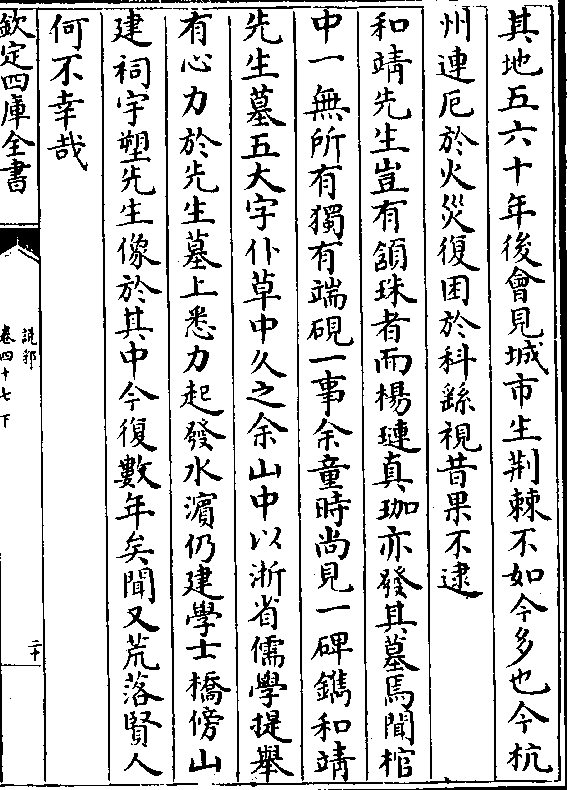 其地五六十年後會見城市生荆棘不如今多也今杭
州連厄於火災復困於科繇視昔果不逮
和靖先生豈有頷珠者而楊璉真珈亦發其墓焉聞棺
中一無所有獨有端硯一事余童時尚見一碑鐫和靖
先生墓五大字仆草中久之余山中以浙省儒學提舉
有心力於先生墓上悉力起發水濵仍建學士橋傍山
建祠宇塑先生像於其中今復數年矣聞又荒落賢人
何不幸哉
欽定四庫全書
説郛
卷四十七下
二十